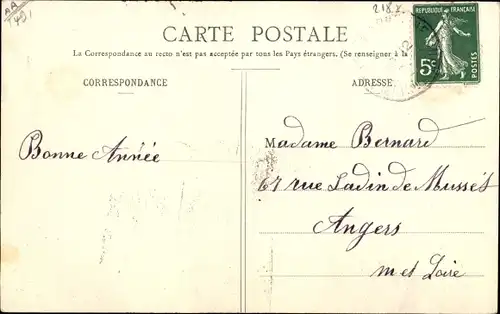 CARTE POSTALE
La Correspondance au recto n'est pas acceptée par tous les Pays étrangers. (Se renseigner à la
CORRESPONDANCE
ADRESSE
REPUBLIQUE FRANÇAISE
5c
POSTES
Bonne Année
Madame Bernard
67 rue de Musset
Angers
m et Loire